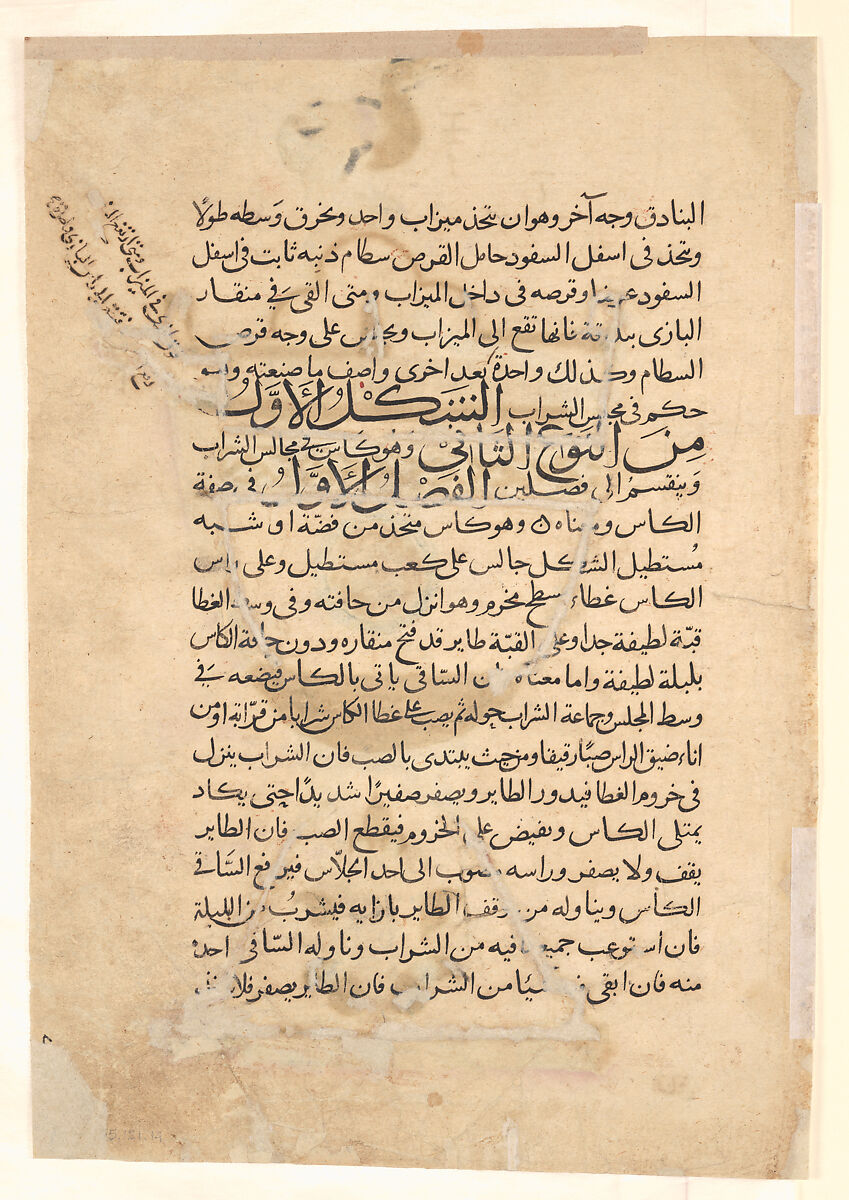 البنادق وجه آخر وهو ان يتخذ ميزاب واحد ويخرق وسطه طولًا
ويتخذ فى اسفل السفود حامل القرص سطام ذنبه ثابت فى اسفل
السفود عريضا وقرصه فى داخل الميزاب ومتى القى فى منقار
البازى ببندقة فانها تقع الى الميزاب ويجلس على وجه قرص
السطام وكذلك واحدة بعد اخرى واصف ما صنعته
حكم فى مجلس الشراب الشكل الأول
من النوع الثانى وهو كاس فى مجالس الشراب
وينقسم الى فصلين الفصل الأول فى صفة
الكاس ومعناه وهو كاس متخذ من فضّة او شبه
مُستطيل الشكل جالس على كعب مستطيل وعلى راس
الكاس غطاء سطح مخرم وهو انزل من حافته وفى وسط الغطا
قبّة لطيفة جدا وعلى القبّة طاير قد فتح منقاره ودون حافة الكاس
بلبلة لطيفة واما معناه ان السّاقى ياتى بالكاس فيضعه فى
وسط المجلس وجماعة الشراب حوله ثم يصب على غطا الكاس شرابا من قرّابه او من
اناء ضيق الراس صبًا رقيقا ومن حيث يبتدى بالصب فان الشراب ينزل
فى خروم الغطا فيدور الطاير ويصفر صفيرًا شديدًا حتى يكاد
يمتلى الكاس ويفيض على الخروم فيقطع الصب فان الطاير
يقف ولا يصفر وراسه مصوب الى احد الجلّاس فيرفع السَّاقى
الكأس ويناوله من وقف الطاير بازايه فيشربُ من البلبلة
فان استوعب جميع ما فيه من الشراب وناوله السّاقى احده
منه فان ابقى فيه شيئا من الشراب فان الطاير يصفر فلا